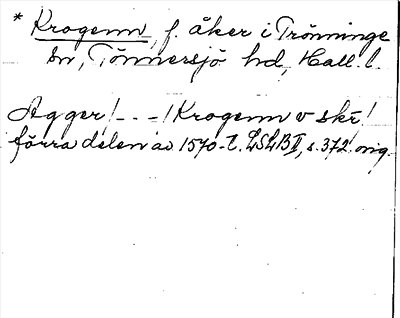 * Krogenn, f. åker i Trönninge
sn, Tönnersjö hd, Hall. l.
Agger! - . - ! Krogenn v skr!
förra delen av 1570-t. LSLB II, s. 372. orig.